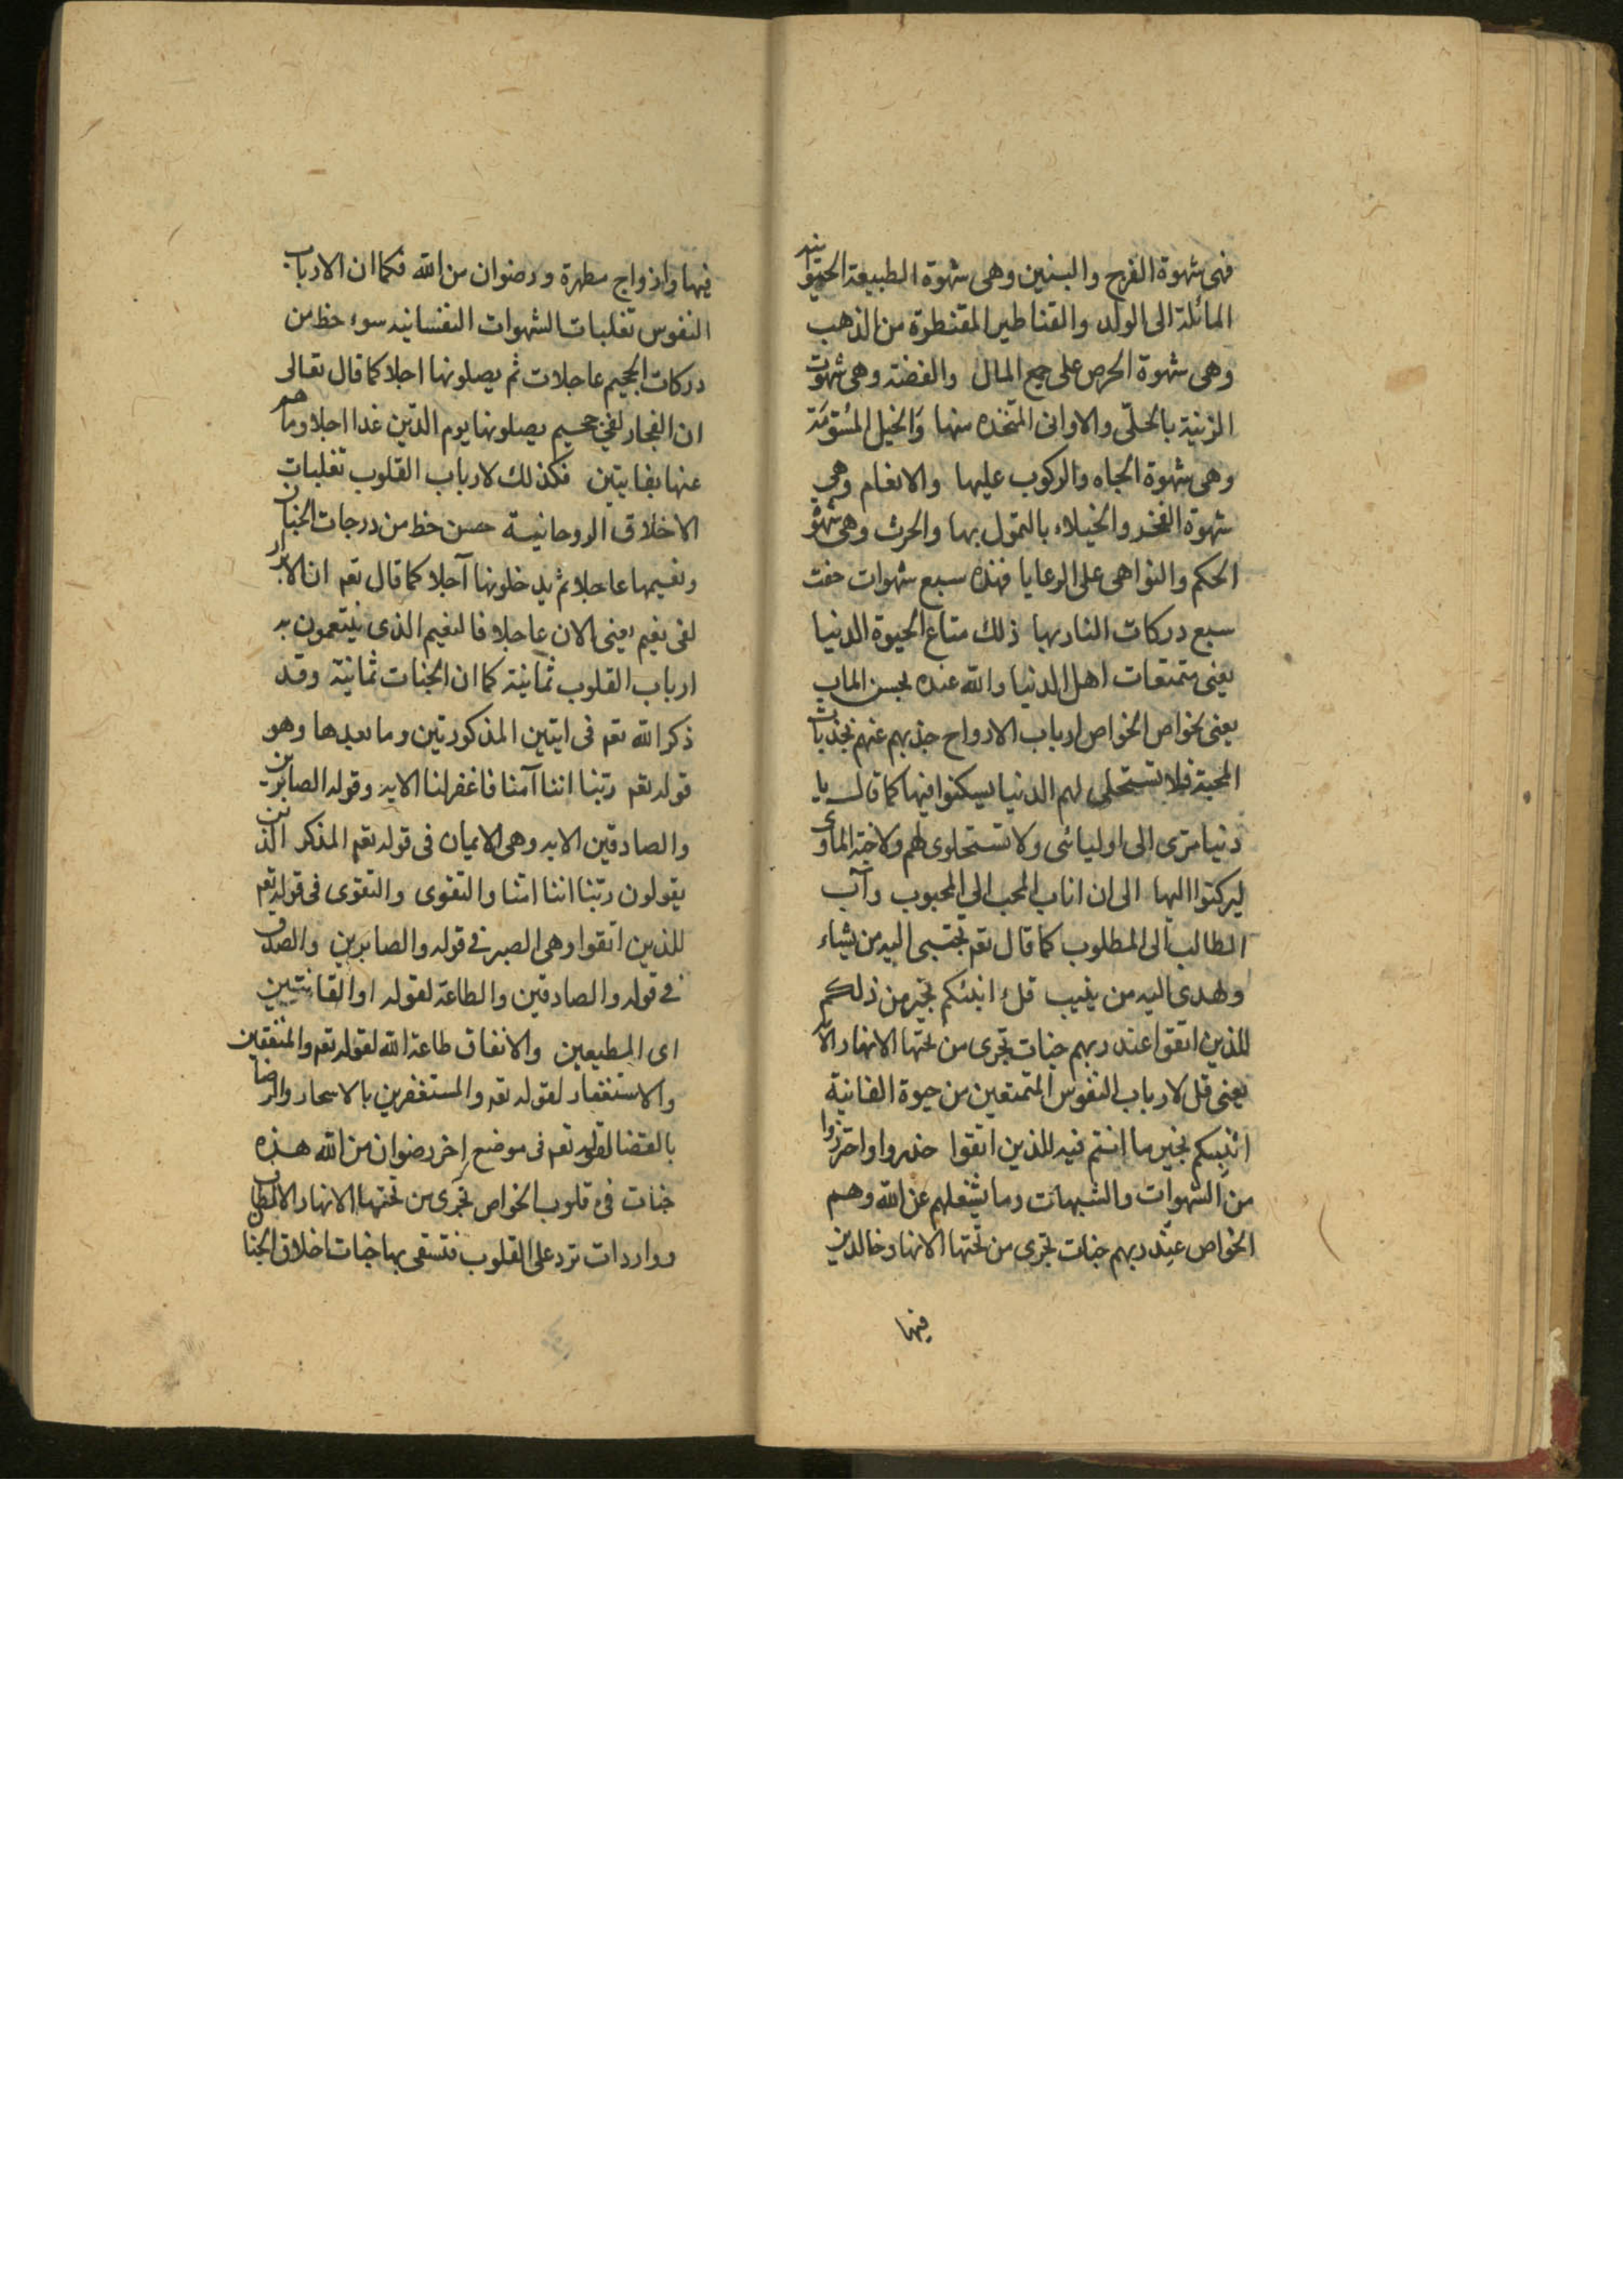 فهى شهوة الفرج والبنين وهى شهوة الطبيعة الحيوانيه
المائلة الى الولد والقناطير المقنطرة من الذهب
وهى شهوة الحرص على جمع المال والفضة وهى شهوت
الزنية بالحلّى والاوانى المتخذه منها وَالخيل المُسَوّمَة
وهى شهوة الجاه والركوب عليها والانعام وهى
شهوة الفخر والخيلاء بالتموّل بها والحرث وهى شهوة
الحكم والنواهى على الرعايا فهذه سبع شهوات حفت
سبع دركات النار بها ذلك متاع الحيوة الدنيا
يعنى متمتعات اهل الدنيا والله عنده لحسن الماب
يعنى لخواص الخواص ارباب الارواح جذبهم عنهم بجذبات
المحبة فلا تستحلى لهم الدنيا ليسكنوا فيها كما قال يا
دنيا مرّى الى اوليائى ولا تستحلوى لهم ولا جنة الماوى
ليركنوا اليها الى ان اناب المحب الى المحبوب وآب
الطالب الى المطلوب كما قال تعم يجتبى اليه من يشاء
ويهدى اليه من ينيب قل اءنبئكم بخير من ذلكم
للذين اتقوا عند ربهم جنات تجرى من تحتها الانهار الآية
يعنى قل لارباب النفوس المتمتعين من حيوة الفانية
اءنبئكم بخير ما انتم فيه للذين اتقوا حذروا واحترزوا
من الشهوات والشبهات وما يشغلهم عن الله وهم
الخواص عند ربهم جنات تجرى من تحتها الانهار خالدين
فيها
فيها وازواج مطهرة ورضوان من الله فكما ان الارباب
النفوس تغلبات الشهوات النفسانيه سوء حظ من
دركات الجحيم عاجلات ثم يصلونها اجلا كما قال تعالى
ان الفجار لفى جحيم يصلونها يوم الدّين غدا اجلا وما هم
عنها بغايبين فكذلك لارباب القلوب تغلبات
الاخلاق الروحانية حسن حظ من درجات الجنان
ونعيمها عاجلا ثم يدخلونها آجلا كما قال تعم ان الابرار
لفى نعيم يعنى الان عاجلا فالنعيم الذى يتنعمون به
ارباب القلوب ثمانية كما ان الجنات ثمانية وقد
ذكر الله تعم فى ايتين المذكورتين وما بعدها وهو
قوله تعم ربّنا اننا آمنا فاغفر لنا الايه وقوله الصابرين
والصادقين الايه وهى الايمان فى قوله تعم المذكر الذين
يقولون ربّنا اننا امنا والتقوى والتقوى فى قوله تعم
للذين اتقوا وهى الصبر فى قوله والصابرين والصدق
فى قوله والصادقين والطاعة لقوله او القانتين
اى المطيعين والانفاق طاعة الله لقوله تعم والمنفقين
والاستغفار لقوله تعم والمستغفرين بالاسحار والرضا
بالقضا لقوله تعم فى موضع اخر رضوان من الله هذه
جنات فى قلوب الخواص تجرى من تحتها الانهار الالطاف
وواردات ترد على القلوب فتسقى بها جنات اخلاق الجنا